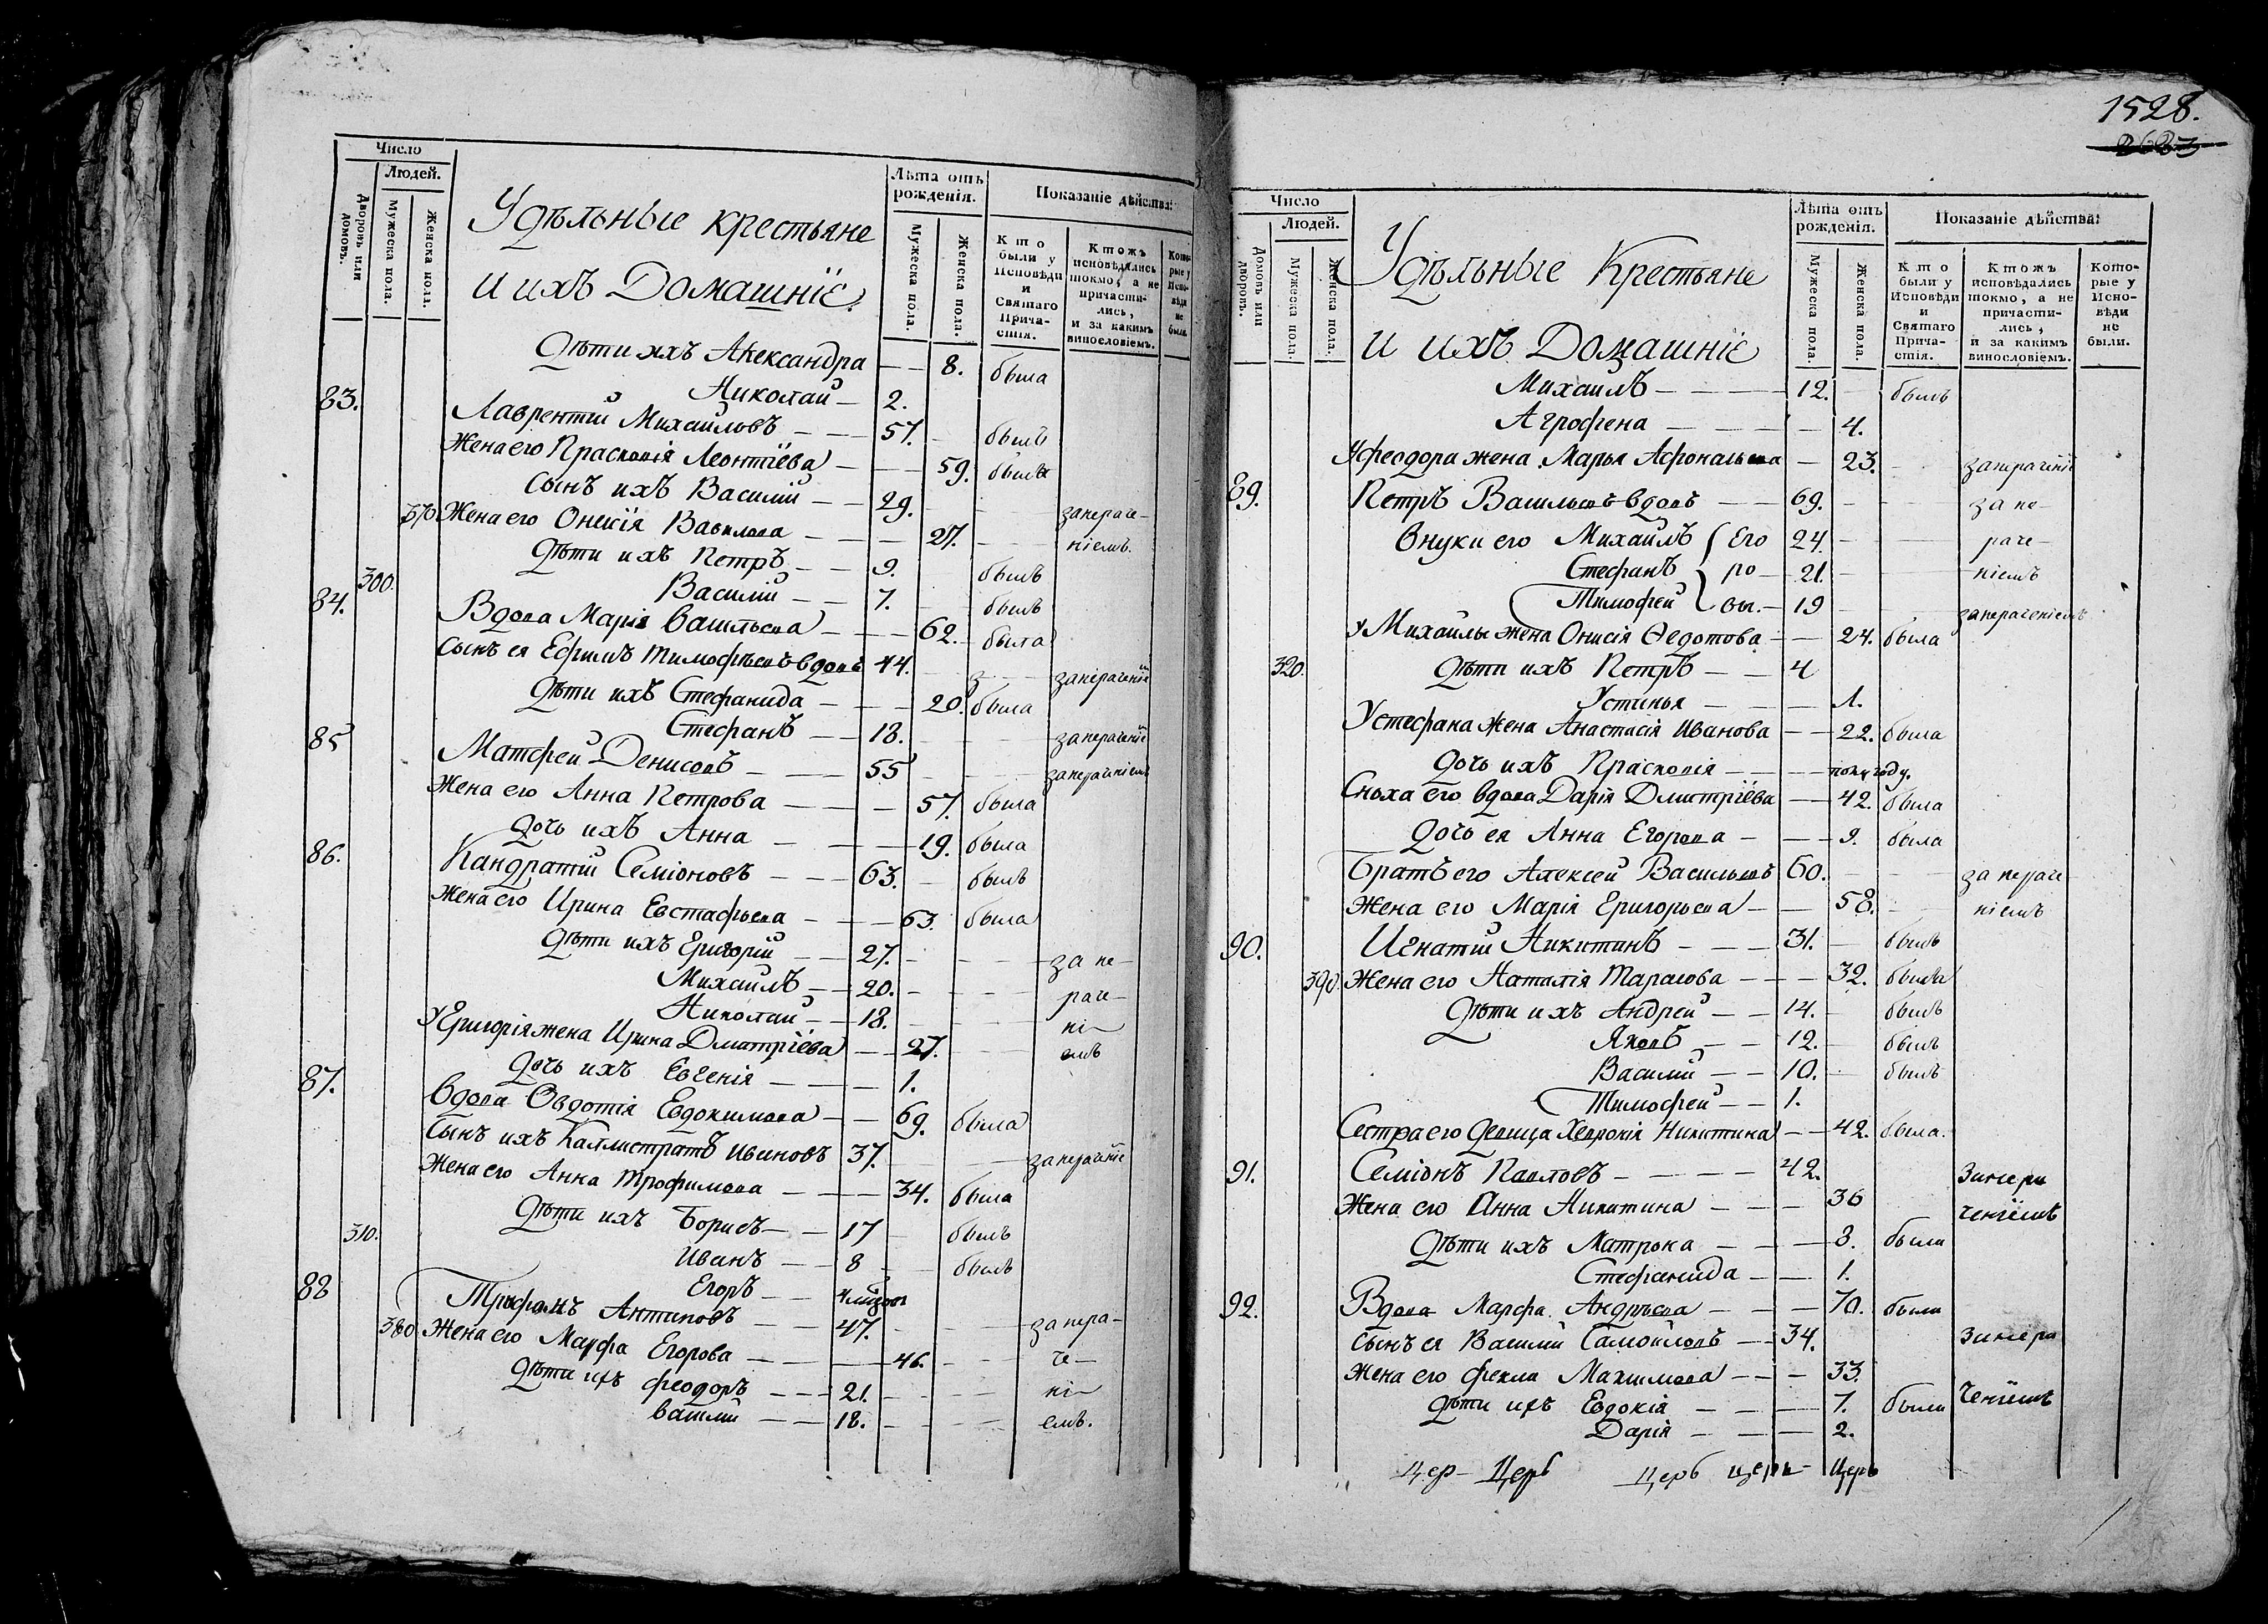 Число
Людей.
Дворовъ или домовъ.
Мужеска пола.
Женска пола.
Удѣльные крестьяне
и ихъ Домашнiе
Лѣта отъ рожденiя.
Мужеска пола.
Женска пола.
Показанiе дѣйства:
Кто были у Исповѣди и Святаго Причастiя.
Ктожъ исповѣдались токмо, а не причастились, и за какимъ винословiемъ.
Которые у Исповѣди не были.
Дѣти ихъ Александра — — 8. была
Николай — 2.
83. Лаврентiй Михайловъ — — 57. былъ
Жена его Прасковiя Леонтiева — — — 59. была
Сынъ ихъ Василiй — — 29. запераче-
370 Жена его Онисiя Вавилова — — — 27. нiемъ.
Дѣти ихъ Петръ — — 9. былъ
300. Василiй — — 7. былъ
84. Вдова Марiя Васильева — — — 62. была
Сынъ ея Ефимъ Тимофѣевъ вдовъ 44.
Дѣти ихъ Стефанида — — — 20. была
Стефанъ — — 18.
85 Матфей Денисовъ — — — 55
Жена его Анна Петрова — — — — 57. была
Дочь ихъ Анна — — — 19. была
86. Кандратiй Семiоновъ — — — 63. — былъ
Жена его Ирина Евстафьева — — — 63. была
Дѣти ихъ Григорiй — — 27. — за пе-
Михаилъ — — 20. — раче-
Николай — — 18. нi-
У Григорiя жена Ирина Дмитрiева — — 27. емъ
Дочь ихъ Евгенiя — — — — 1.
87. Вдова Овдотiя Евдокимова — — 69. была
Сынъ ихъ Каллистратъ Ивановъ 37.
Жена его Анна Трофимова — — — 34. была
Дѣти ихъ Борисъ — — 17 былъ
310. Иванъ — — 8 былъ
Егоръ — —
88 Трифонъ Антиповъ — — 47.
380 Жена его Марфа Егорова — — — 46. че-
Дѣти ихъ Феодоръ — — — 21. нi-
Василiй — — — 18. емъ.
1528.
Число
Людей.
Домовъ или дворовъ.
Мужеска пола.
Женска пола.
Удѣльные Крестьяне
и ихъ Домашнiе
Лѣта отъ рожденiя.
Мужеска пола.
Женска пола.
Показанiе дѣйства:
Кто были у Исповѣди и Святаго Причастiя.
Ктожъ исповѣдались токмо, а не причастились, и за какимъ винословiемъ.
Которые у Исповѣди не были.
Михаилъ — — — — 12. былъ
Агрофена — — — — — 4.
У Феодора жена Марья — 23.
89. Петръ Васильевъ вдовъ — — 69. за пе-
Внуки его Михаилъ Его 24 раче-
Стефанъ ро — 21. нiемъ
Тимофей вы. — 19 заперaченiемъ
У Михайлы жена Онисiя Ѳедотова — — 24. была
320. Дѣти ихъ Петръ — — 4
Устинья — — — 1.
У Стефана жена Анастасiя Иванова — — 22. была
Дочь ихъ Прасковiя — — — полугоду.
Сноха его вдова Дарiя Дмитрiева — — 42. была
Дочь ея Анна Егорова — — — 9. была
Братъ его Алексей Васильевъ 60. за пераче
Жена его Марiя Григорьева — — 58. нiемъ
90. Игнатiй Никитинъ — — — 31. былъ
390. Жена его Наталiя Тарасова — — — 32. была
Дѣти ихъ Андрей — — 14. — былъ
Яковъ — — 12. — былъ
Василiй — — 10. — былъ
Тимофей — — 1.
Сестра его девица Хеврония Никитина — — 42. была.
91. Семiонъ Павловъ — — — — 42.
Жена его Анна Никитина — — — 36 ченiемъ
Дѣти ихъ Матрона — — — 8. была
Стефанида — — 1.
92. Вдова Марфа Андрѣева — — — 70. была
Сынъ ея Василiй Самойловъ — — 34.
Жена его Фекла Максимова — — — 33.
Дѣти ихъ Евдокiя — — — 7. была ченiемъ
Дарiя — — — 2.
Цер- Церь Церь церь- Церь